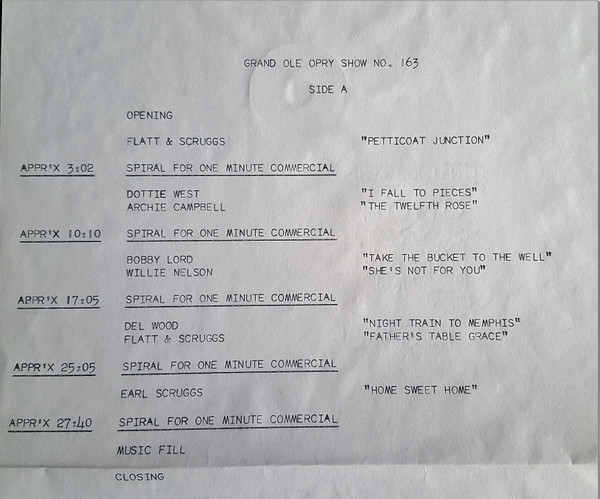 GRAND OLE OPRY SHOW NO. 163
SIDE A
OPENING
FLATT & SCRUGGS "PETTICOAT JUNCTION"
APPR'X 3:02 SPIRAL FOR ONE MINUTE COMMERCIAL
DOTTIE WEST "I FALL TO PIECES"
ARCHIE CAMPBELL "THE TWELFTH ROSE"
APPR'X 10:10 SPIRAL FOR ONE MINUTE COMMERCIAL
BOBBY LORD "TAKE THE BUCKET TO THE WELL"
WILLIE NELSON "SHE'S NOT FOR YOU"
APPR'X 17:05 SPIRAL FOR ONE MINUTE COMMERCIAL
DEL WOOD "NIGHT TRAIN TO MEMPHIS"
FLATT & SCRUGGS "FATHER'S TABLE GRACE"
APPR'X 25:05 SPIRAL FOR ONE MINUTE COMMERCIAL
EARL SCRUGGS "HOME SWEET HOME"
APPR'X 27:40 SPIRAL FOR ONE MINUTE COMMERCIAL
MUSIC FILL
CLOSING